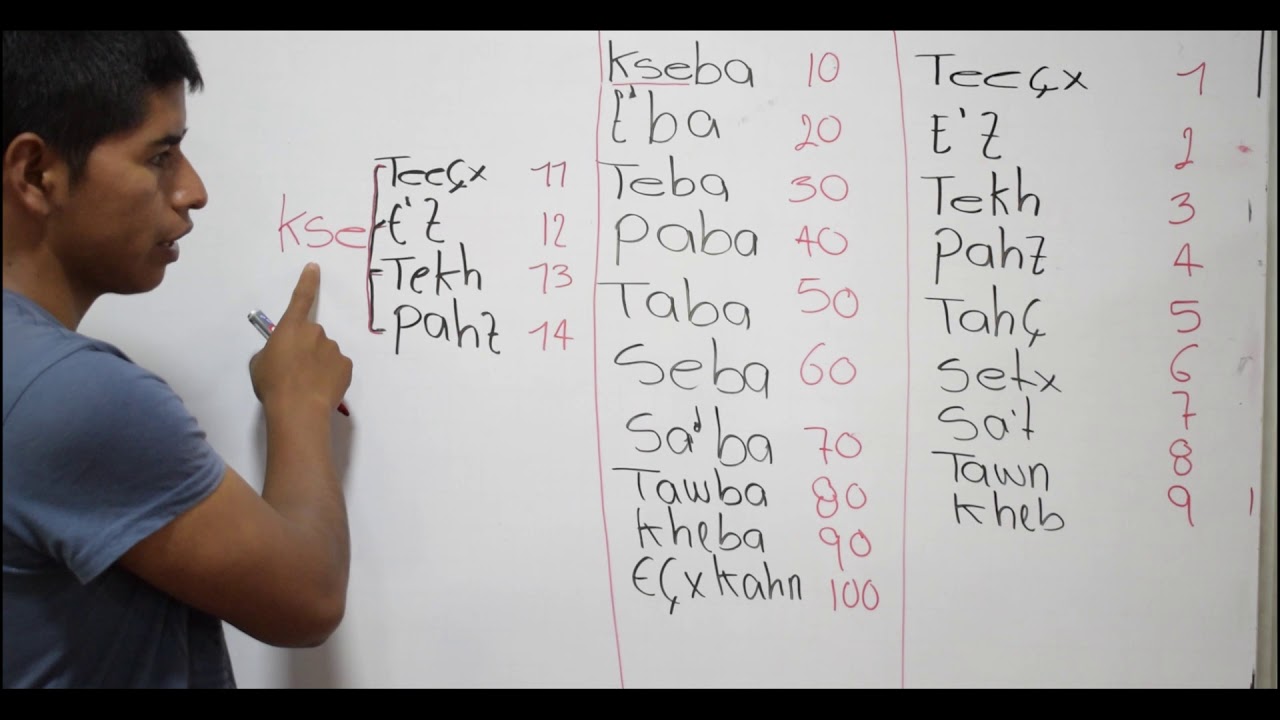 kse
Teeçx 11
E'Z 12
Tekh 13
Pahz 14
Kseba 10
E'ba 20
Teba 30
Paba 40
Taba 50
Seba 60
Sa'ba 70
Tawba 80
Kheba 90
Eçxkahn 100
Teeçx 1
E'Z 2
Tekh 3
Pahz 4
Tahç 5
Setx 6
Sa't 7
Tawn 8
Kheb 9